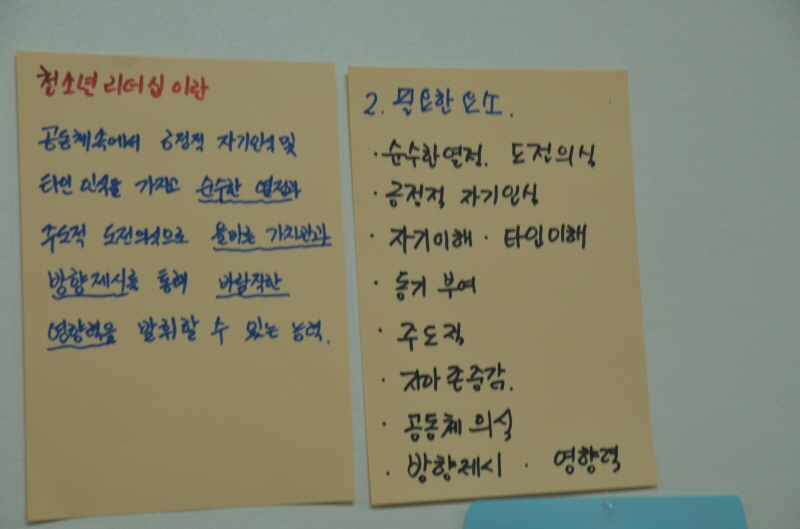 청소년 리더십 이란
공동체속에서 긍정적 자기인식 및
타인 인식을 가지고 순수한 열정과
주도적 도전의식으로 올바른 가치관과
방향제시를 통해 바람직한
영향력을 발휘할 수 있는 능력.
2. 필요한 요소.
· 순수한열정. 도전의식
· 긍정적 자기인식
· 자기이해 · 타인이해
· 동기 부여
· 주도적
· 자아존중감.
· 공동체 의식
· 방향제시 · 영향력